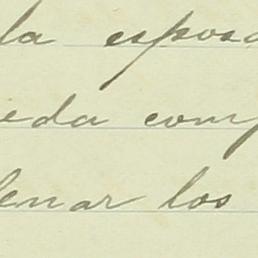 la esposa
eda com
lenar los